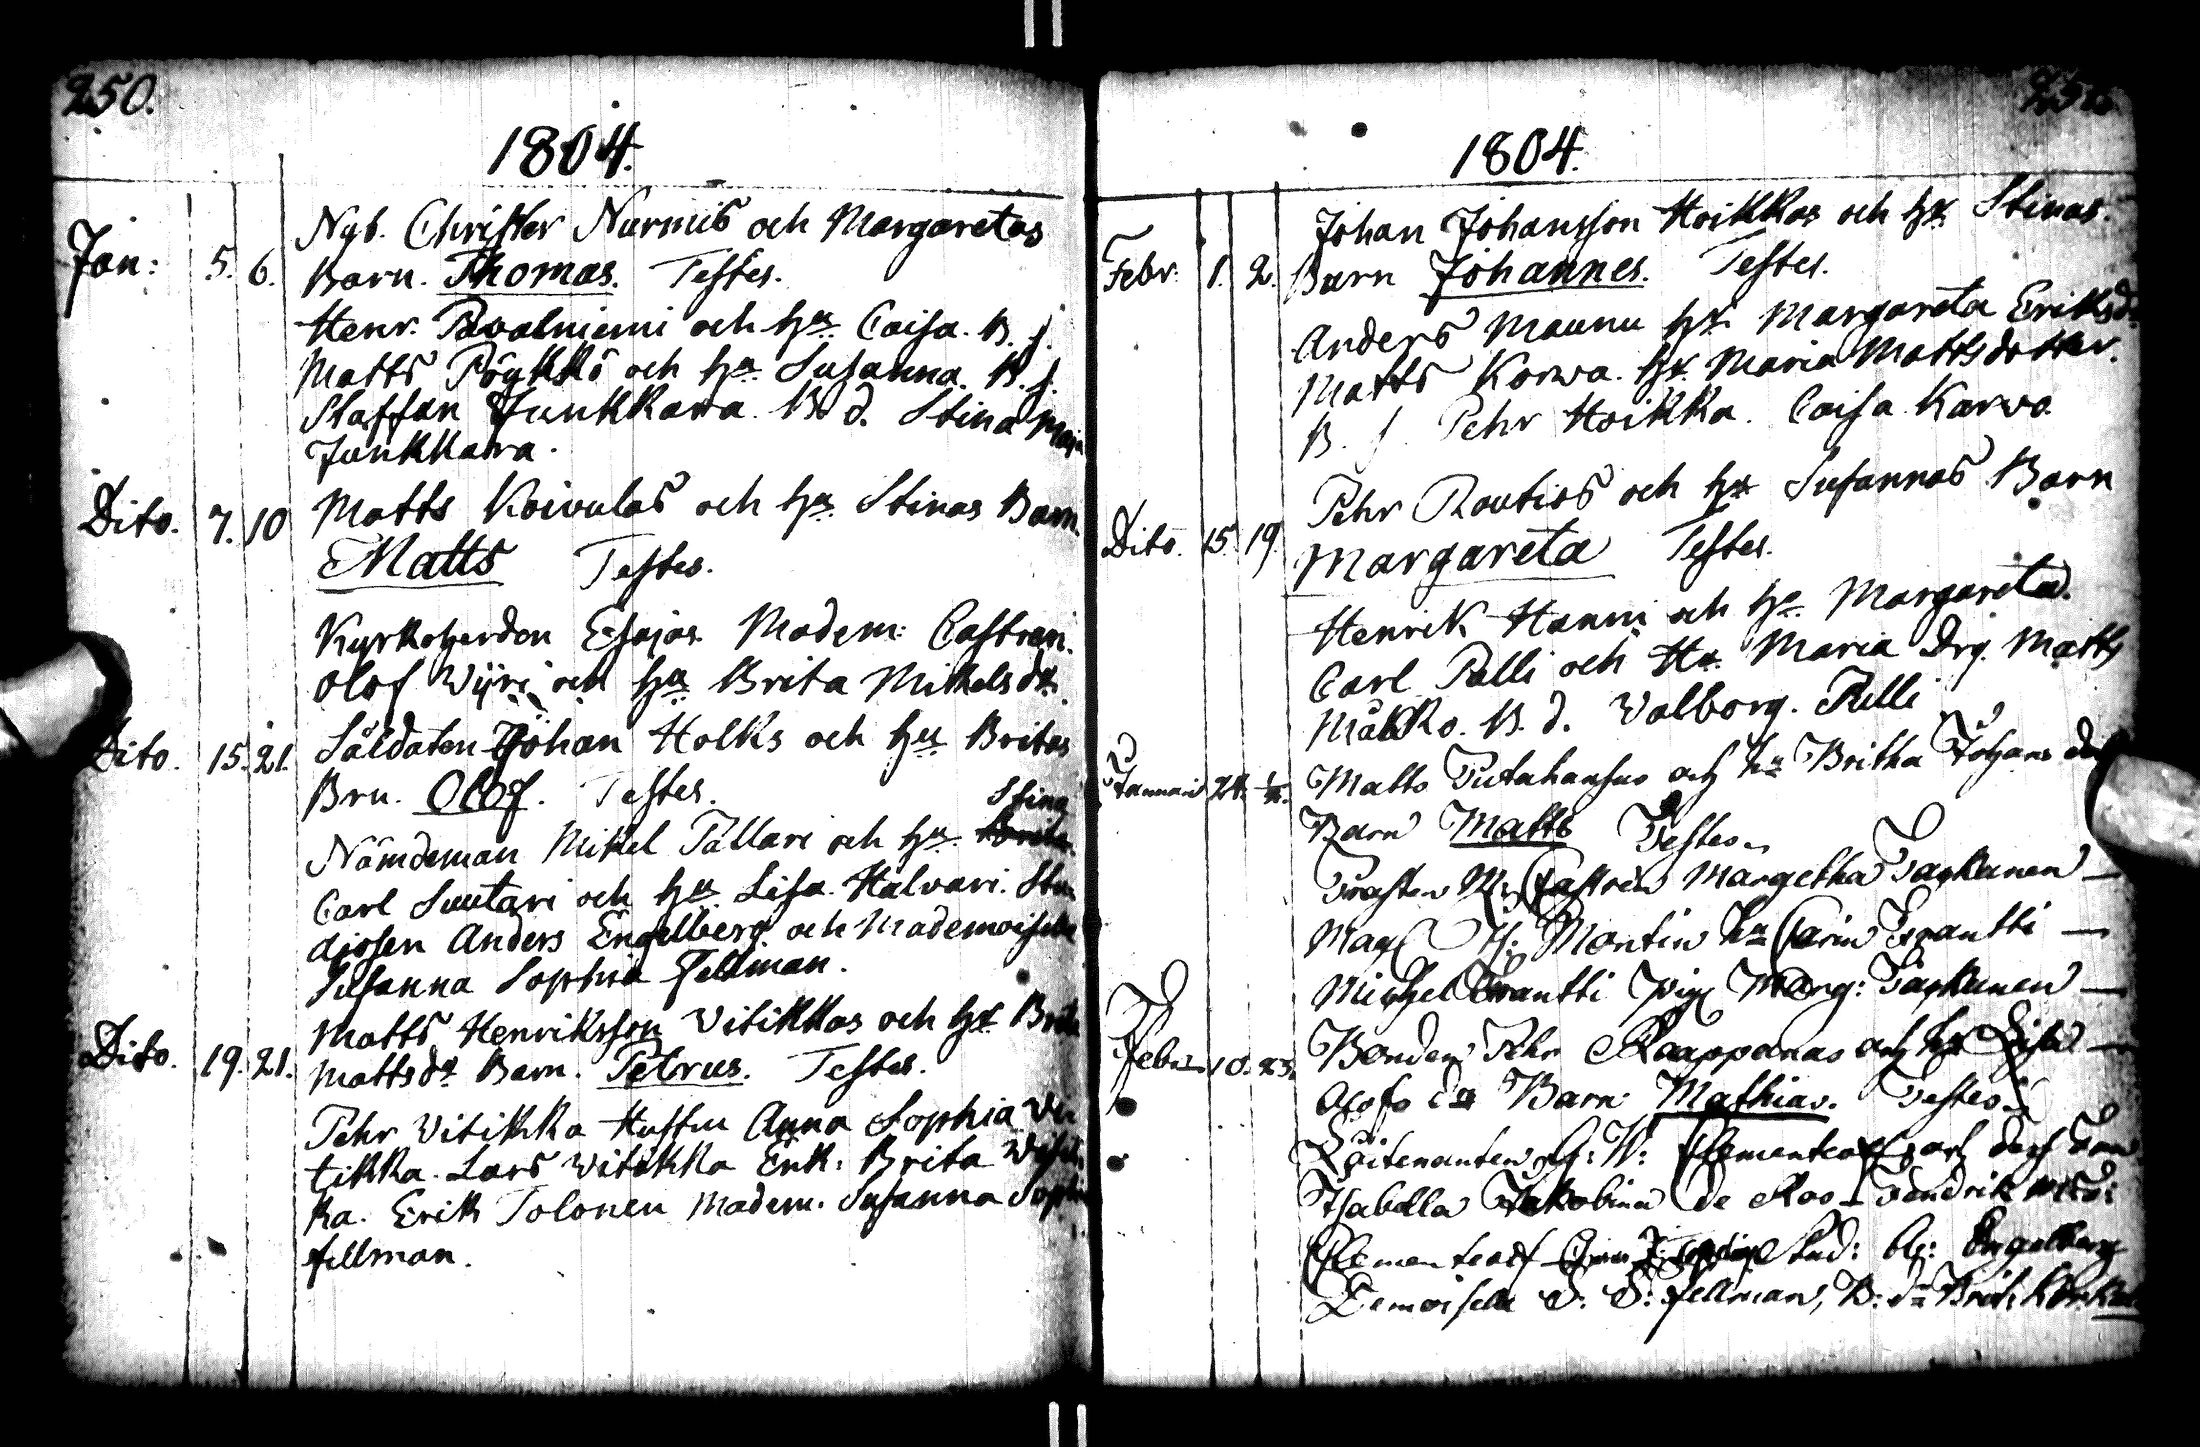 250.
1804.
Nyb. Christer Nurmis och Margaretas
Jan: 5. 6. Barn. Thomas. Testes.
Henr. Pavalniemi och hu. Caisa. B. s.
Matts Pöykkö och hu. Susanna. B. s.
Staffan Junkkara. B d. Stina Maja
Junkkara.
Dito. 7. 10 Matts Koivulas och hu. Stinas Barn.
Matts Testes.
Kyrkoherden Esajas Madem: Castren.
Olof Wijri och hu Brita Mikels dr.
Dito. 15. 21. Såldaten Johan Holks och hu Britas
Brn. Olof. Testes. Stina
Nämdeman Mikel Tallari och hu.
Carl Suutari och hu Lisa Halvari. Stu-
diosen Anders Engelberg och Mademoiselle
Susanna Sophia Fellman.
Matts Henriksson Vitikkas och hu Brita
Dito. 19. 21. Matts dr Barn. Petrus. Testes.
Pehr Vitikka Hustru Anna Sophia Vi
tikka. Lars Witikka Enk: Brita Witik
ka. Erik Tolonen Madem. Susanna Sophia
fellman.
1804.
Johan Johansson Hoikkas och hu Stinas.
Febr. 1. 2. Barn Johannes. Testes.
Anders Maunu hu. Margareta Eriksd.
Matts Korwa. hu. Maria Mattsdotter.
B. s. Pehr Hoikka. Caisa Karvo
Pehr Routios och hu Susannas Barn
Dito. 15. 19. Margareta Testes.
Henrik Hanni och hu. Margareta.
Carl Palli och Hu Maria Drg. Matts
Måkko. B. d. Valborg. Pelli
Januari 24. Matts hu Britha Johans
Barn Matts Testes.
Margetha
Mag Montin hu Carin
Michel Pig Marg:
Febr. 10. 23. Bonden Pehr Kaappanas och hu Lisa
Olofs dr Barn Mathias. Testes
Isabella Jakobina De Roo Fendrik
Stud: Engelberg
Demoiselle S: S: fellman, B: d